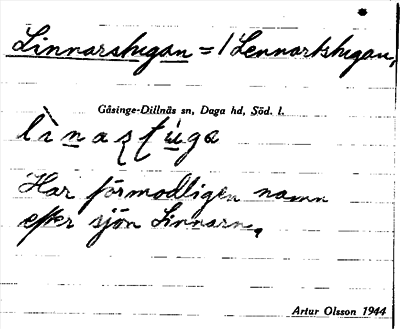 Linnarstugan = / Lennartstugan,
Gåsinge-Dillnäs sn, Daga hd, Söd. l.
Har förmodligen namn
efter sjön Linnarn.
Artur Olsson 1944